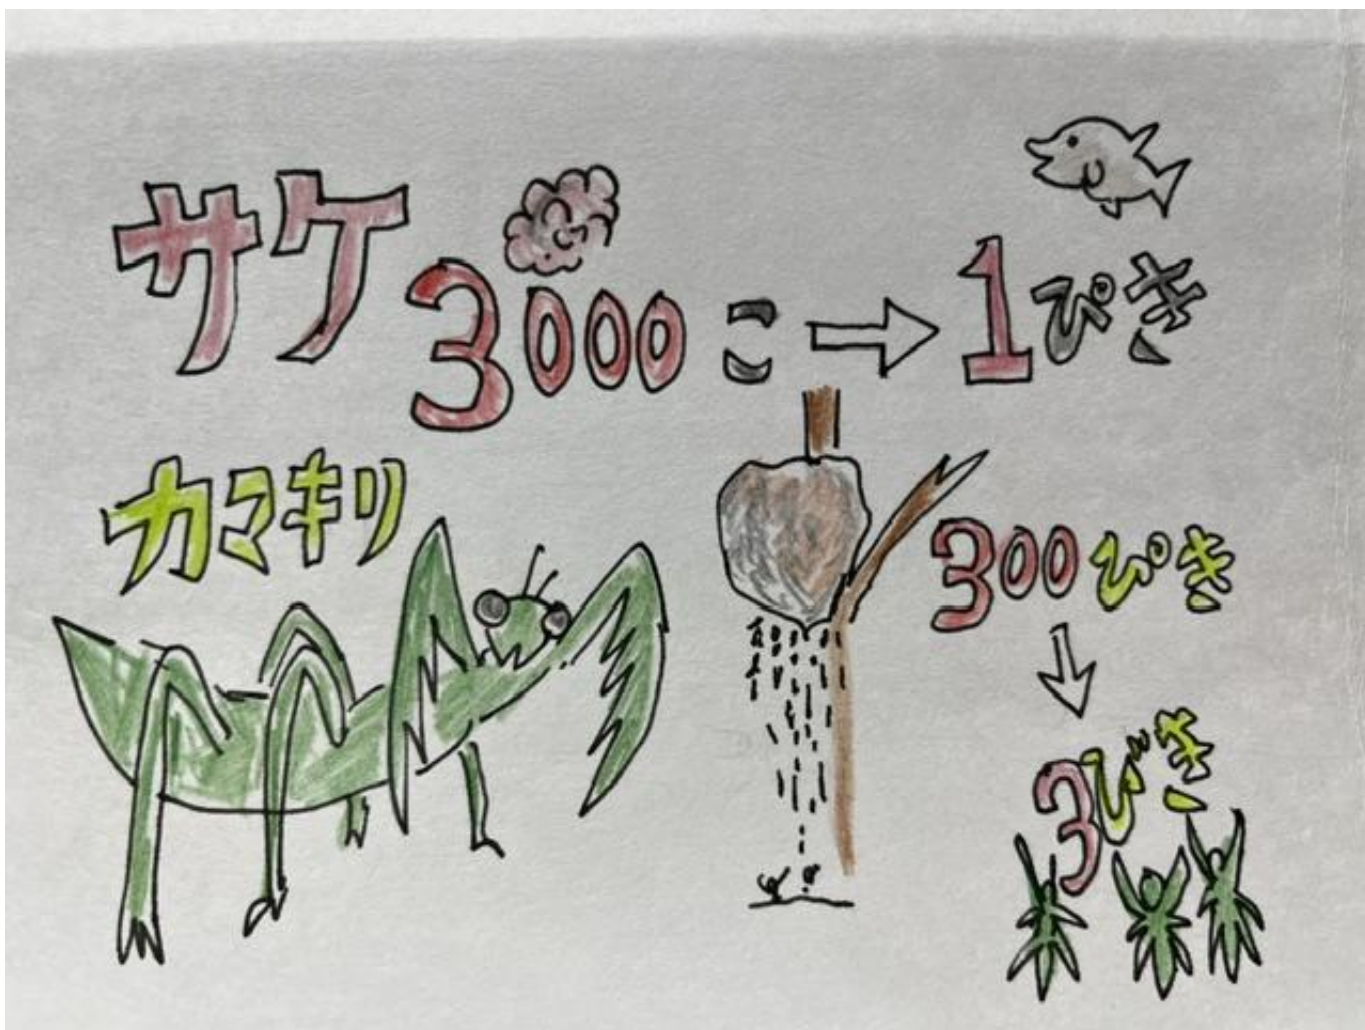 サケ3000こ→1ぴき
カマキリ
300ぴき
↓
3びき